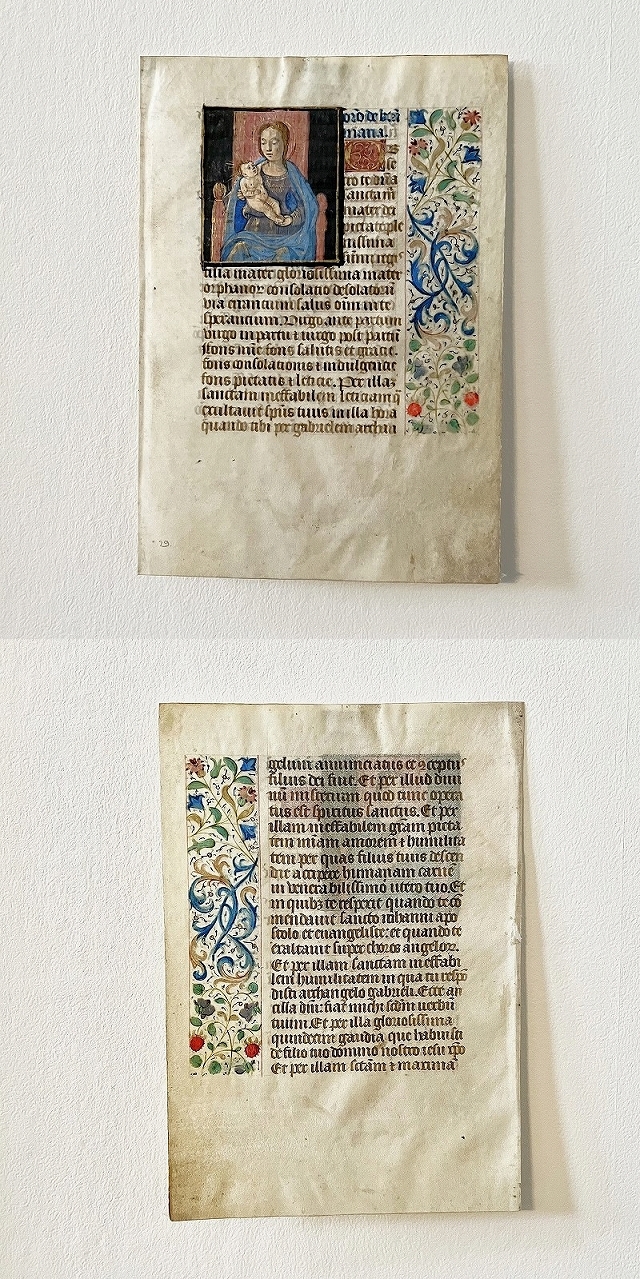 maria.
se
co te d̄na
sanctam
mater dei
pietate ple
tissima
filia mater gloriosissima mater
orphanoꝝ consolacio desolatoꝝ
via errancium salus om̄ in te
sperancium. Virgo ante partum
virgo in partu ⁊ virgo post partū
fons mīe fons salutis et gracie.
fons consolationis ⁊ indulgencie
fons pietatis ⁊ leticie. Per illaꝫ
sanctam ineffabilem leticiam q̄
exultauit sp̄us tuus in illa hora
quando tibi per gabrielem archan
29.
gelum annunciatus et ꝯceptus
filius dei fuit. Et per illud diui
nū misterium quod tunc opera
tus est spiritus sanctus. Et per
illam ineffabilem gr̄am pieta
tem m̄iam amorem ⁊ humilita
tem per quas filius tuus descen
dit accipere humanam carnē
in venerabilissimo utero tuo. Et
in quibꝫ te respexit quando te cō
mendauit sancto iohanni apo
stolo et euangeliste: et quando te
exaltauit super choros angeloꝝ.
Et per illam sanctam ineffabi
lem humilitatem in qua tu respō
disti archangelo gabrieli. Ecce an
cilla dn̄i: fiat michi scdm̄ uerbū
tuum. Et per illa gloriosissima
quindecim gaudia que habuisti
de filio tuo domino nostro iesu xp̄o
Et per illam sctām ⁊ maxima